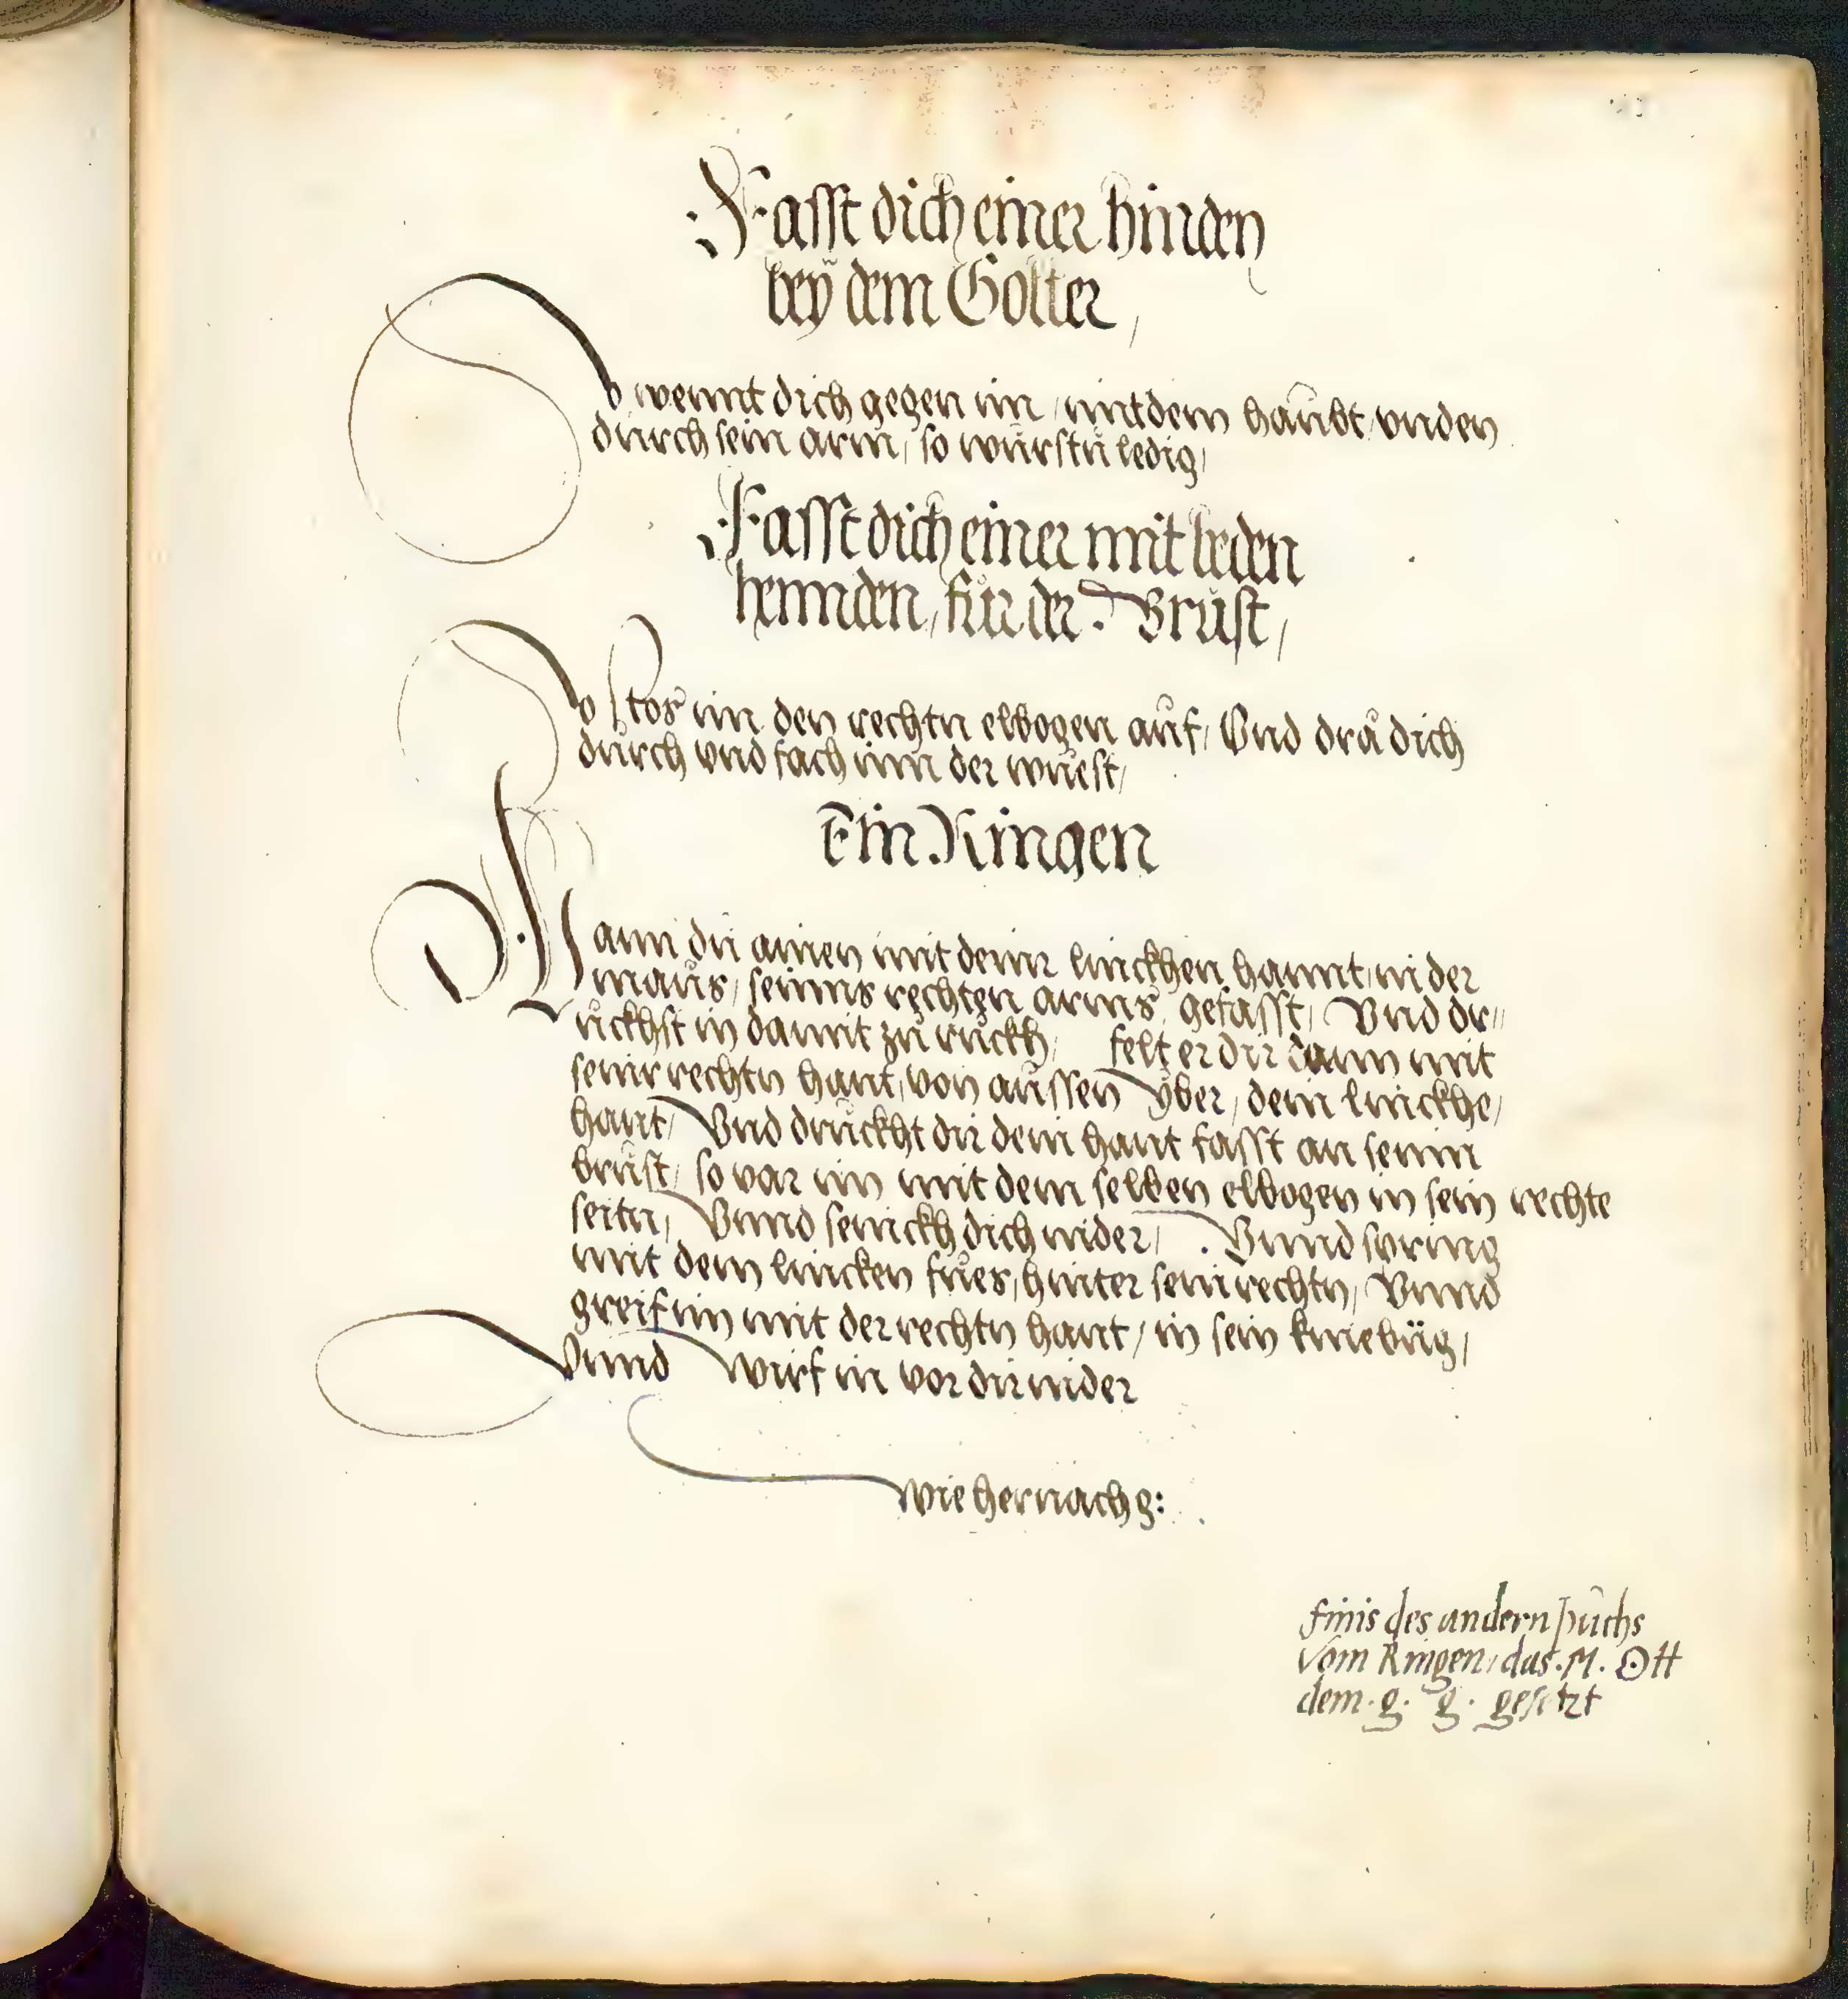 Fasst dich einer hinden
bey dem Goller,
So wennt dich gegen im / mit dem haubt / unden
durch sein arm, so würstu ledig,
Fasst dich einer mit beden
hennden, für der Brust,
So stos im den rechtn elbogen auf, Und drå dich
durch und fach inn der wuest,
Ein Ringen
Wann du ainen mit deinr linckhen hannt, in der
maus, seinns rechten arms, gefasst, Und dr„
uckhst in damit zu ruckh, felt er dir dann mit
seinr rechtn hant, von aussen Über, dein linckhe,
hant, Und druckht dir dein hant fasst an seinn
brust, so var im mit dem selben elbogen in sein rechte
seitn, Unnd senckh dich nider, Unnd spring
mit dem lincken fues, hinter sein rechtn, Unnd
greif im mit der rechtn hant, in sein kniebüg,
Unnd Wirf in vor dir nider
Wie hernach g:
finis des andern puchs
Vom Ringen, das . M . Ott
dem . g . g . gesetzt